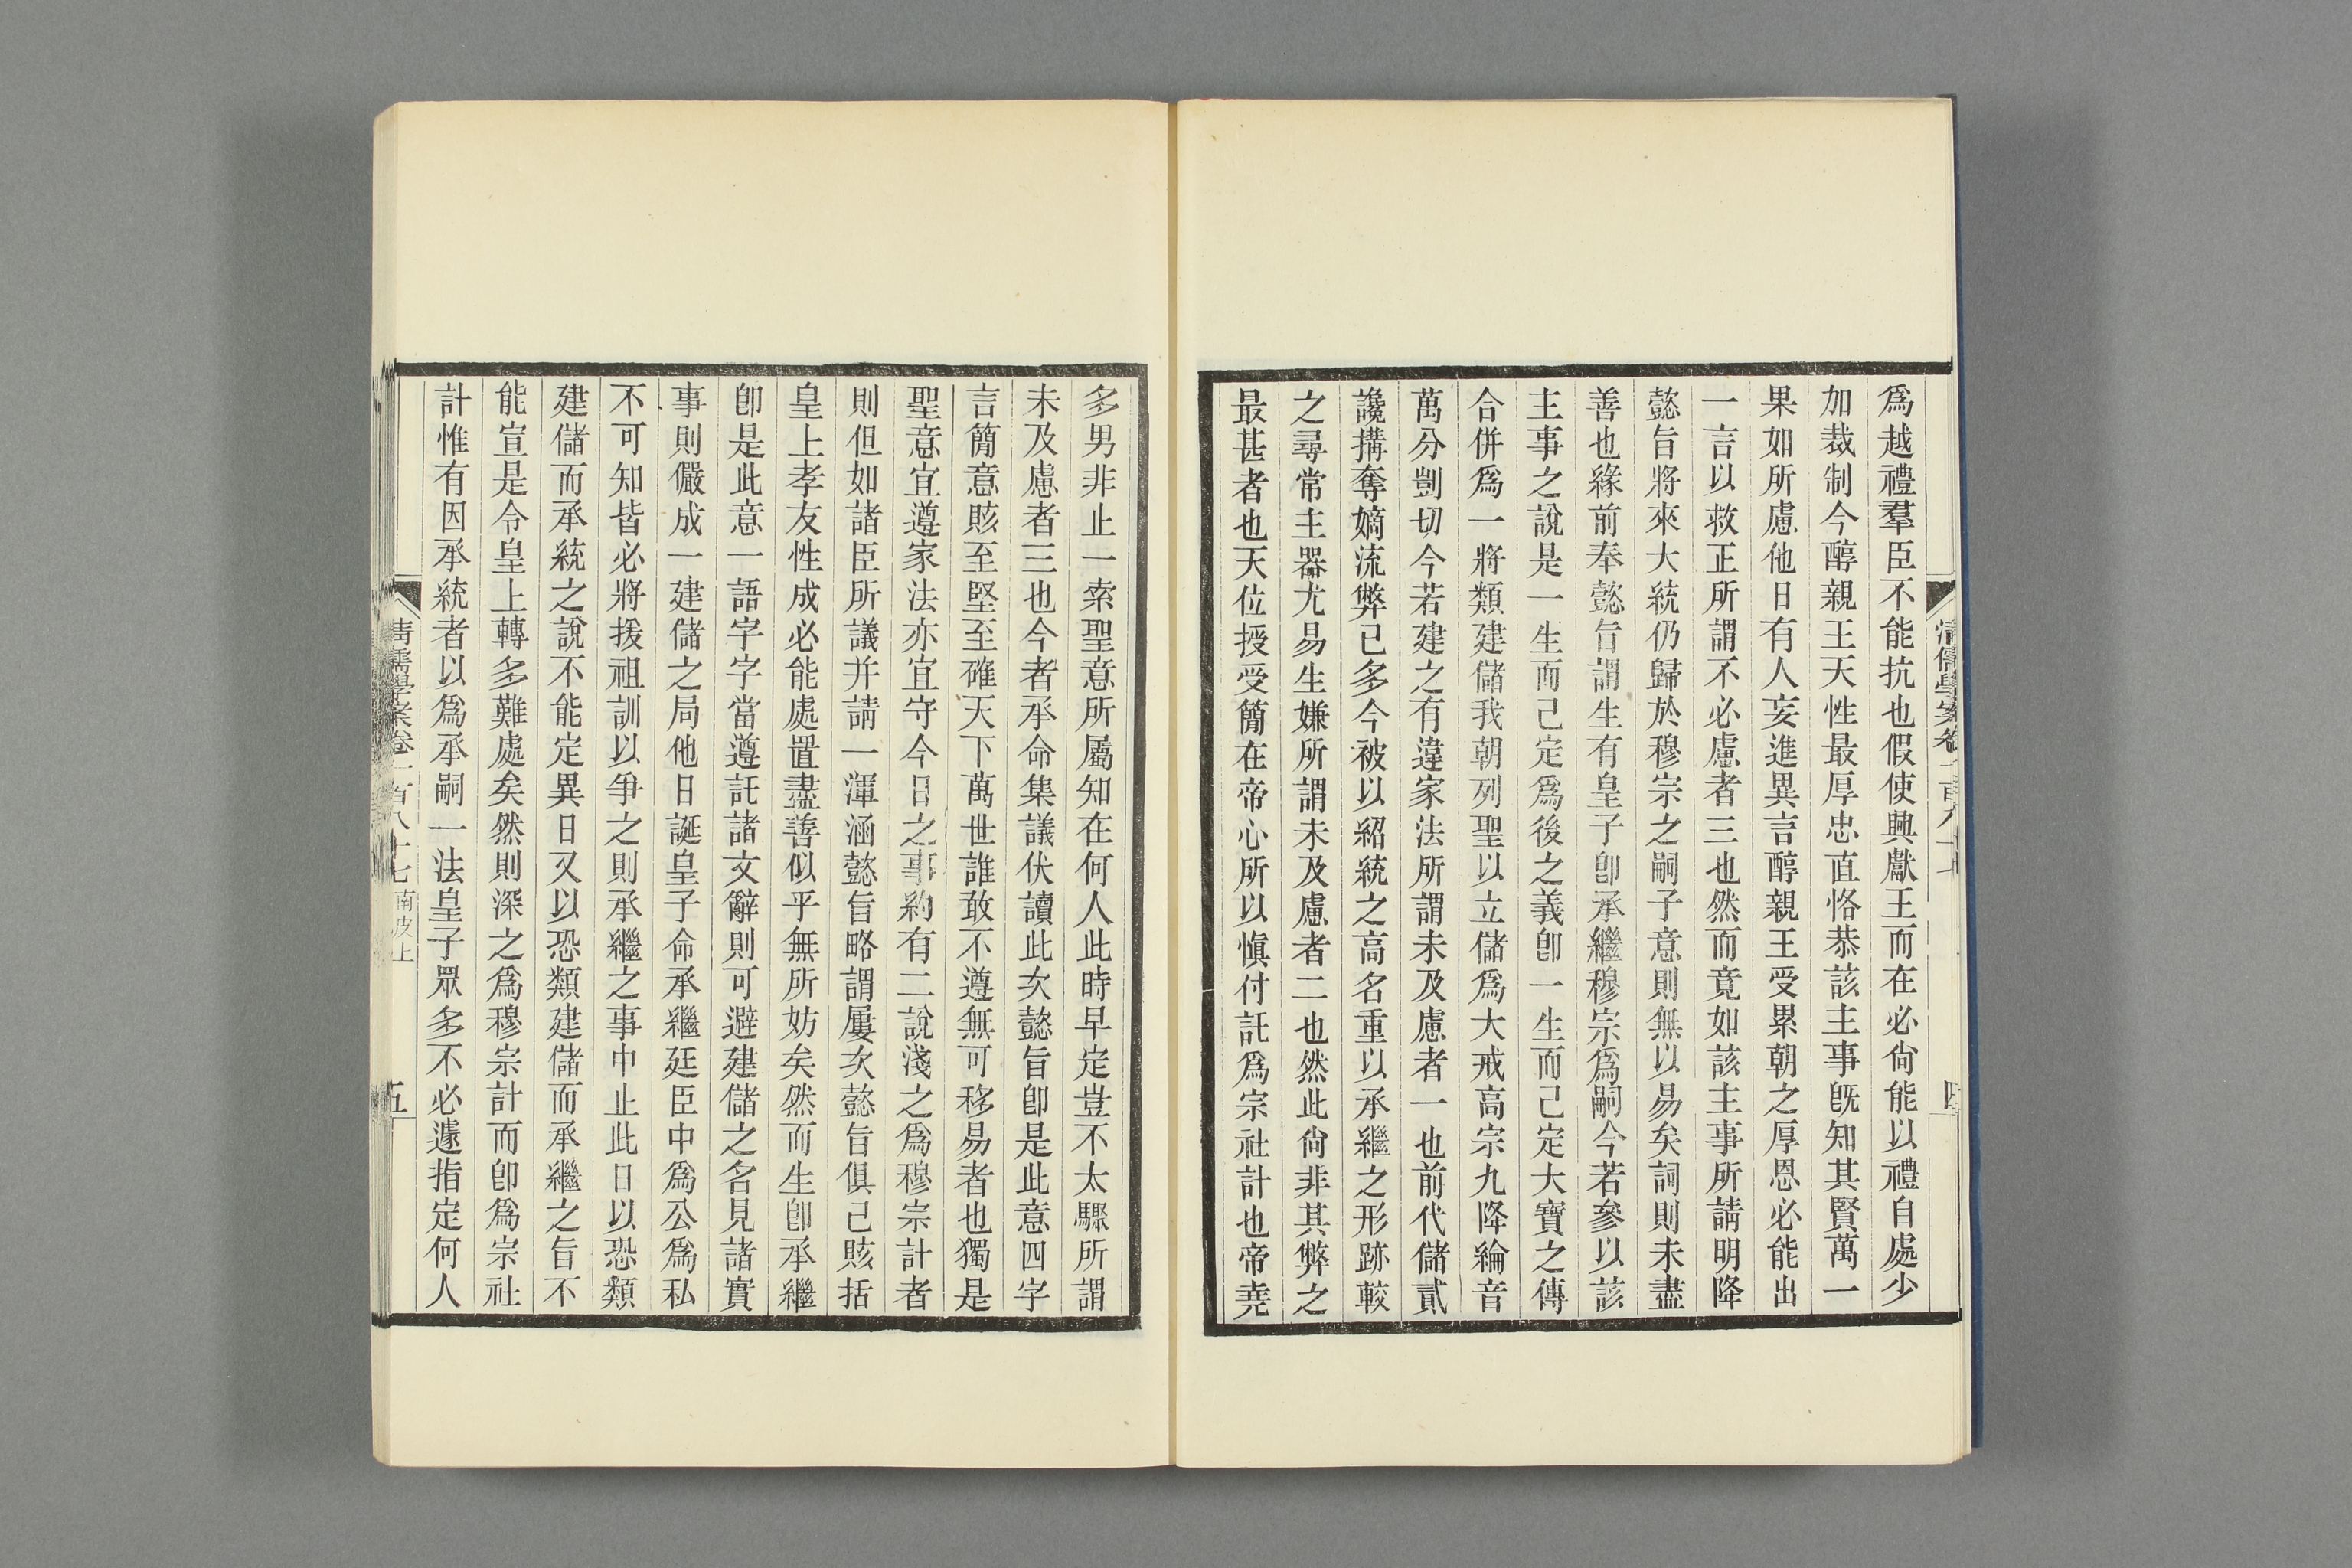 爲越禮羣臣不能抗也假使興獻王而在必尙能以禮自處少
加裁制今醇親王天性最厚忠直恪恭該主事旣知其賢萬一
果如所慮他日有人妄進異言醇親王受累朝之厚恩必能出
一言以救正所謂不必慮者三也然而竟如該主事所請明降
懿旨將來大統仍歸於穆宗之嗣子意則無以易矣詞則未盡
善也緣前奉懿旨謂生有皇子卽承繼穆宗爲嗣今若參以該
主事之說是一生而已定爲後之義卽一生而已定大寶之傳
合併爲一將類建儲我朝列聖以立儲爲大戒高宗九降綸音
萬分剴切今若建之有違家法所謂未及慮者一也前代儲貳
讒搆奪嫡流弊已多今被以紹統之高名重以承繼之形跡較
之尋常主器尤易生嫌所謂未及慮者二也然此尙非其弊之
最甚者也天位授受簡在帝心所以愼付託爲宗社計也帝堯
多男非止一索聖意所屬知在何人此時早定豈不太驟所謂
未及慮者三也今者承命集議伏讀此次懿旨卽是此意四字
言簡意賅至堅至確天下萬世誰敢不遵無可移易者也獨是
聖意宜遵家法亦宜守今日之事約有二說淺之爲穆宗計者
則但如諸臣所議并請一渾涵懿旨略謂屢次懿旨俱已賅括
皇上孝友性成必能處置盡善似乎無所妨矣然而生卽承繼
卽是此意一語字字當遵託諸文辭則可避建儲之名見諸實
事則儼成一建儲之局他日誕皇子命承繼廷臣中爲公爲私
不可知皆必將援祖訓以爭之則承繼之事中止此日以恐類
建儲而承統之說不能定異日又以恐類建儲而承繼之旨不
能宣是令皇上轉多難處矣然則深之爲穆宗計而卽爲宗社
計惟有因承統者以爲承嗣一法皇子眾多不必遽指定何人
清儒學案卷一百八十七 南皮上
五